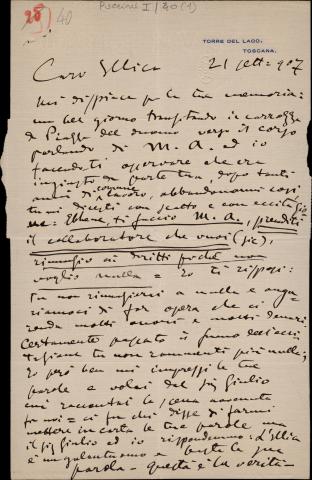 Puccini I/40(1)
28
40
TORRE DEL LAGO,
TOSCANA.
21 sett. 907
Caro Illica
Mi dispiace per la tua memoria:
un bel giorno transitando in carrozza
da Piazza del duomo verso il corso
parlando di M. A. ed io
facendoti osservare che era
da parte tua, dopo tanti
anni di comune lavoro, abbandonarmi così,
tu mi dicesti con scatto e con
Ebbene, ti faccio M. A., prenditi
il collaboratore che vuoi (sic),
rinunzio ai diritti poiché non
voglio nulla = Io ti risposi:
Tu non rinunzierai a nulla e augu
riamoci di far opera che ci
renda molti onori e molti denari
Certamente passato il fumo
tu non rammenti più nulla;
Io però ben mi impressi le tue
parole e volai dal Sig Giulio
mi raccontai la scena avvenuta
fra noi = ci fu chi disse di farmi
mettere in carta le tue parole ma
il sig Giulio ed io rispondemmo: L'Illica
è un galantuomo e basta la sua
parola - questa è la verità -